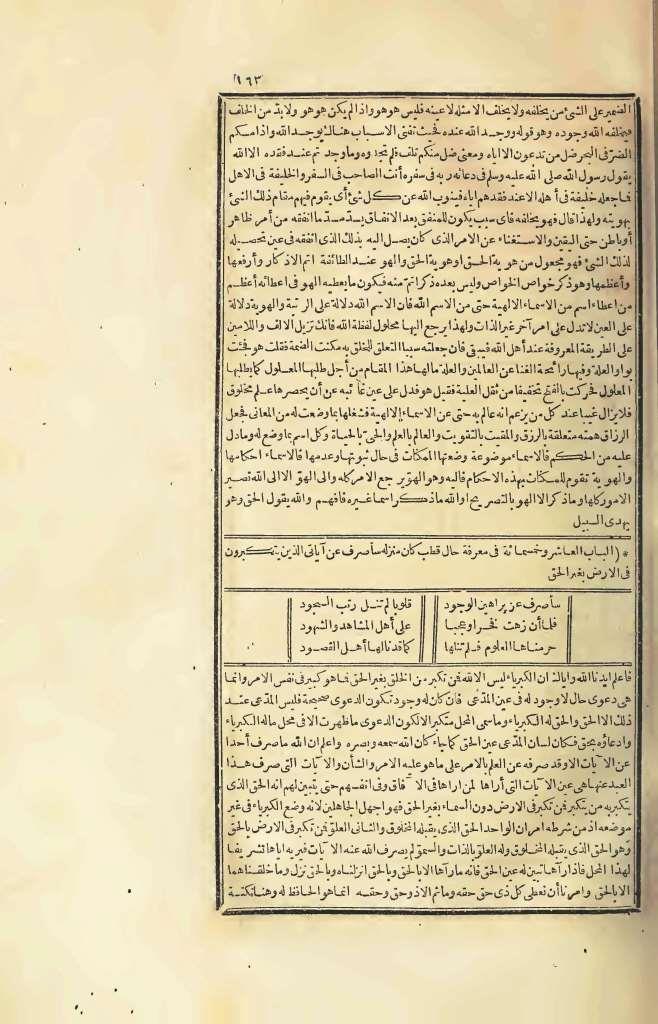 ١٦٣
الضمير على الشئ من يخلفه ولا يخلف الا مثله لا عينه فليس هو هو واذا لم يكن هو هو ولا بد من الخلف
فيخلفه الله وجوده وهو قوله ووجد الله عنده فحيث تفنى الاسباب هنالك يوجد الله واذا مسكم
الضر فى البحر ضل من تدعون الا اياه ومعنى ضل منكم تلف فلم تجدوه وما وجد تم عند فقده الا الله
يقول رسول الله صلى الله عليه وسلم فى دعائه ربه فى سفره أنت الصاحب فى السفر والخليفة فى الاهل
فاجعله خليفة فى أهله الا عند فقدهم اياه فينوب الله عن كل شئ أى يقوم فيهم مقام ذلك الشئ
بهويته ولهذا قال فهو يخلفه فاى سبب يكون للمنفق بعد الانفاق يسد مسد ما انفقه من أمر ظاهر
أو باطن حتى اليقين والاستغناء عن الامر الذى كان يصل اليه بذلك الذى انفقه فى عين تحصيله
لذلك الشئ فهو مجعول من هوية الحق او هوية الحق والهو عند الطائفة اتم الاذكار وأرفعها
وأعظمها وهو ذكر خواص الخواص وليس بعده ذكر اتم منه فيكون ما يعطيه الهو فى اعطائه أعظم
من اعطاء اسم من الاسماء الالهية حتى من الاسم الله فان الاسم الله دلالة على الرتبة والهوية دلالة
على العين لا تدل على امر آخر غير الذات ولهذا يرجع اليها محلول لفظة الله فانك تزيل الالف واللامين
على الطريقة المعروفة عند أهل الله فيبقى فان جعلته سببا لتعلق للخلق به مكنت الضمة فقلت هو فجئت
بواو العلة وفيها رائحة الغنا عن العالمين والعلة مالها هذا المقام من أجل طلبها المعلول كما يطلبها
المعلول فحركت بالفتح تخفيفا من ثقل العلية فقيل هو فدل على عين غائبه عن أن يحصرها علم مخلوق
فلا يزال غيبا عند كل من يزعم انه عالم به حتى عن الاسماء الالهية فشغلها بما وضعت له من المعانى فجعل
الرزاق همته متعلقة بالرزق والمقيت بالتقويت والعالم بالعلم والحى بالحياة وكل اسم بما وضع له وما دل
عليه من الحكم فالاسماء موضوعة وضعتها الممكنات فى حال ثبوتها وعدمها فالاسماء احكامها
والهوية تقوم للممكنات بهذه الاحكام فاليه وهو الهو يرجع الامر كله والى الهو الا الى الله تصير
الامور كلها وما ذكر الا الهو بالتصريح او الله ما ذكر اسما غيره فافهم والله يقول الحق وهو
يهدى السبيل
* (الباب العاشر وخمسمائة فى معرفة حال قطب كان منزله سأصرف عن آياتى الذين يتكبرون
فى الارض بغير الحق
سأصرف عن براهين الوجود قلوبا لم تنل رتب السجود
فلما أن زهت فخرا وعجبا على أهل المشاهد والشهود
حرمناها العلوم فلم تنلها كما قد نالها أهل القصود
فاعلم ايدنا الله واياك ان الكبرياء ليس الا لله فمن تكبر من الخلق بغير الحق فما هو كبير فى نفس الامر وانما
هى دعوى حال لا وجود له فى عين المدعى فان كان له وجود تكون الدعوى صحيحة فليس المدعى عند
ذلك الا الحق والحق له الكبرياء وما سمى المحل متكبرا الا لكون الدعوى ما ظهرت الا فى محل ماله الكبرياء
وادعاؤه بحق فكان لسان المدعى عين الحق كما جاء كان الله سمعه وبصره واعلم ان الله ما صرف أحدا
عن الآيات الا وقد صرفه عن العلم بالامر على ما هو عليه الامر والشأن والآيات التى صرف هذا
العبد عنها هى عين الآيات التى أراها لمن اراها فى الآفاق وفى انفسهم حتى يتبين لهم انه الحق الذى
يتكبر به من يتكبر فمن تكبر فى الارض دون السماء بغير الحق فهو اجهل الجاهلين لانه وضع الكبرياء فى غير
موضعه اذ من شرطه امران الواحد الحق الذى يقبله المخلوق والثانى العلو فمن تكبر فى الارض بالحق
وهو الحق الذى يقبله المخلوق وله العلو بالذات والسمو لم يصرف الله عنه الآيات فيريه اياها تشريفا
لهذا المحل فاذا رآها تبين له عين الحق فانه ما رآها الا بالحق وبالحق انزلناه وبالحق نزل وما خلقناهما
الا بالحق وامرنا أن نعطى كل ذى حق حقه وما ثم الا ذو حق وحقه انما هو الحافظ له وهنا نكتة